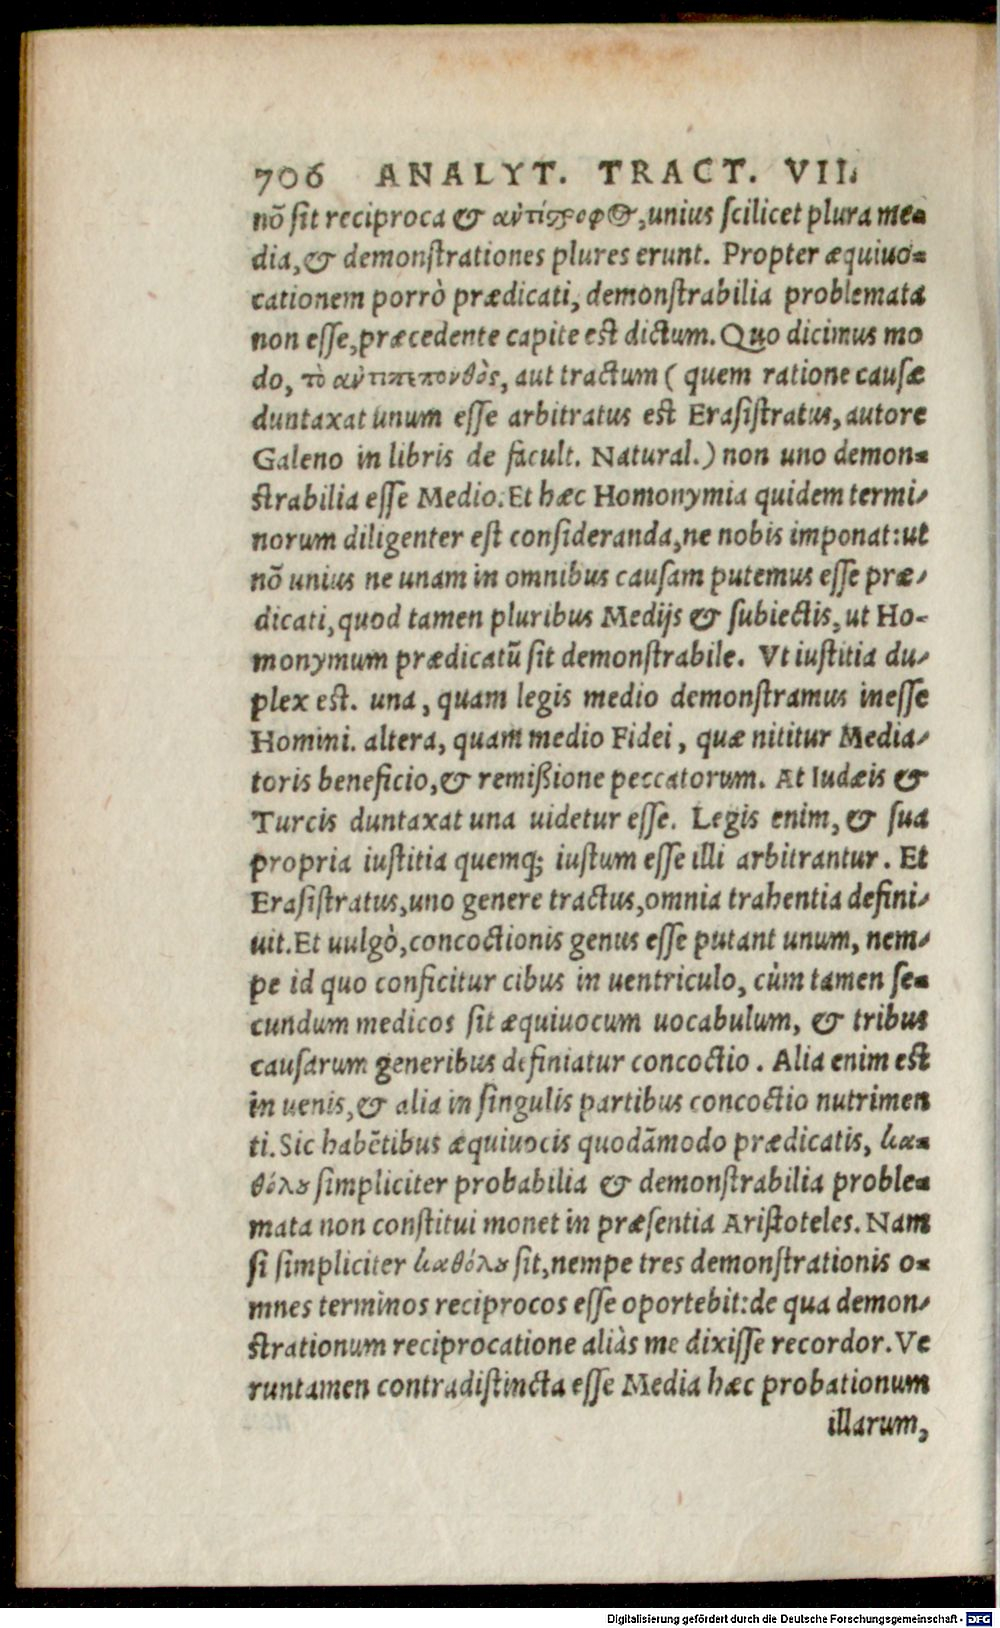 706 ANALYT. TRACT. VII.
nõ sit reciproca & ἀντίστροφος, unius scilicet plura me=
dia, & demonstrationes plures erunt. Propter æquiuo=
cationem porrò prædicati, demonstrabilia problemata
non esse, præcedente capite est dictum. Quo dicimus mo
do, τὸ ἀντιπεπονθὸς, aut tractum ( quem ratione causæ
duntaxat unum esse arbitratus est Erasistratus, autore
Galeno in libris de facult. Natural.) non uno demon=
strabilia esse Medio. Et hæc Homonymia quidem termi/
norum diligenter est consideranda, ne nobis imponat: ut
nõ unius ne unam in omnibus causam putemus esse præ/
dicati, quod tamen pluribus Medijs & subiectis, ut Ho-
monymum prædicatũ sit demonstrabile. Vt iustitia du/
plex est. una, quam legis medio demonstramus inesse
Homini. altera, quam medio Fidei, quæ nititur Media/
toris beneficio, & remißione peccatorum. At Iudæis &
Turcis duntaxat una uidetur esse. Legis enim, & sua
propria iustitia quemq; iustum esse illi arbitrantur. Et
Erasistratus, uno genere tractus, omnia trahentia defini/
uit. Et uulgò, concoctionis genus esse putant unum, nem/
pe id quo conficitur cibus in uentriculo, cùm tamen se=
cundum medicos sit æquiuocum uocabulum, & tribus
causarum generibus definiatur concoctio. Alia enim est
in uenis, & alia in singulis partibus concoctio nutrimen
ti. Sic habẽtibus æquiuocis quodãmodo prædicatis, κα=
θόλου simpliciter probabilia & demonstrabilia proble=
mata non constitui monet in præsentia Aristoteles. Nam
si simpliciter καθόλου sit, nempe tres demonstrationis o=
mnes terminos reciprocos esse oportebit: de qua demon/
strationum reciprocatione aliàs me dixisse recordor. Ve
runtamen contradistincta esse Media hæc probationum
illarum,
Digitalisierung gefördert durch die Deutsche Forschungsgemeinschaft - DFG